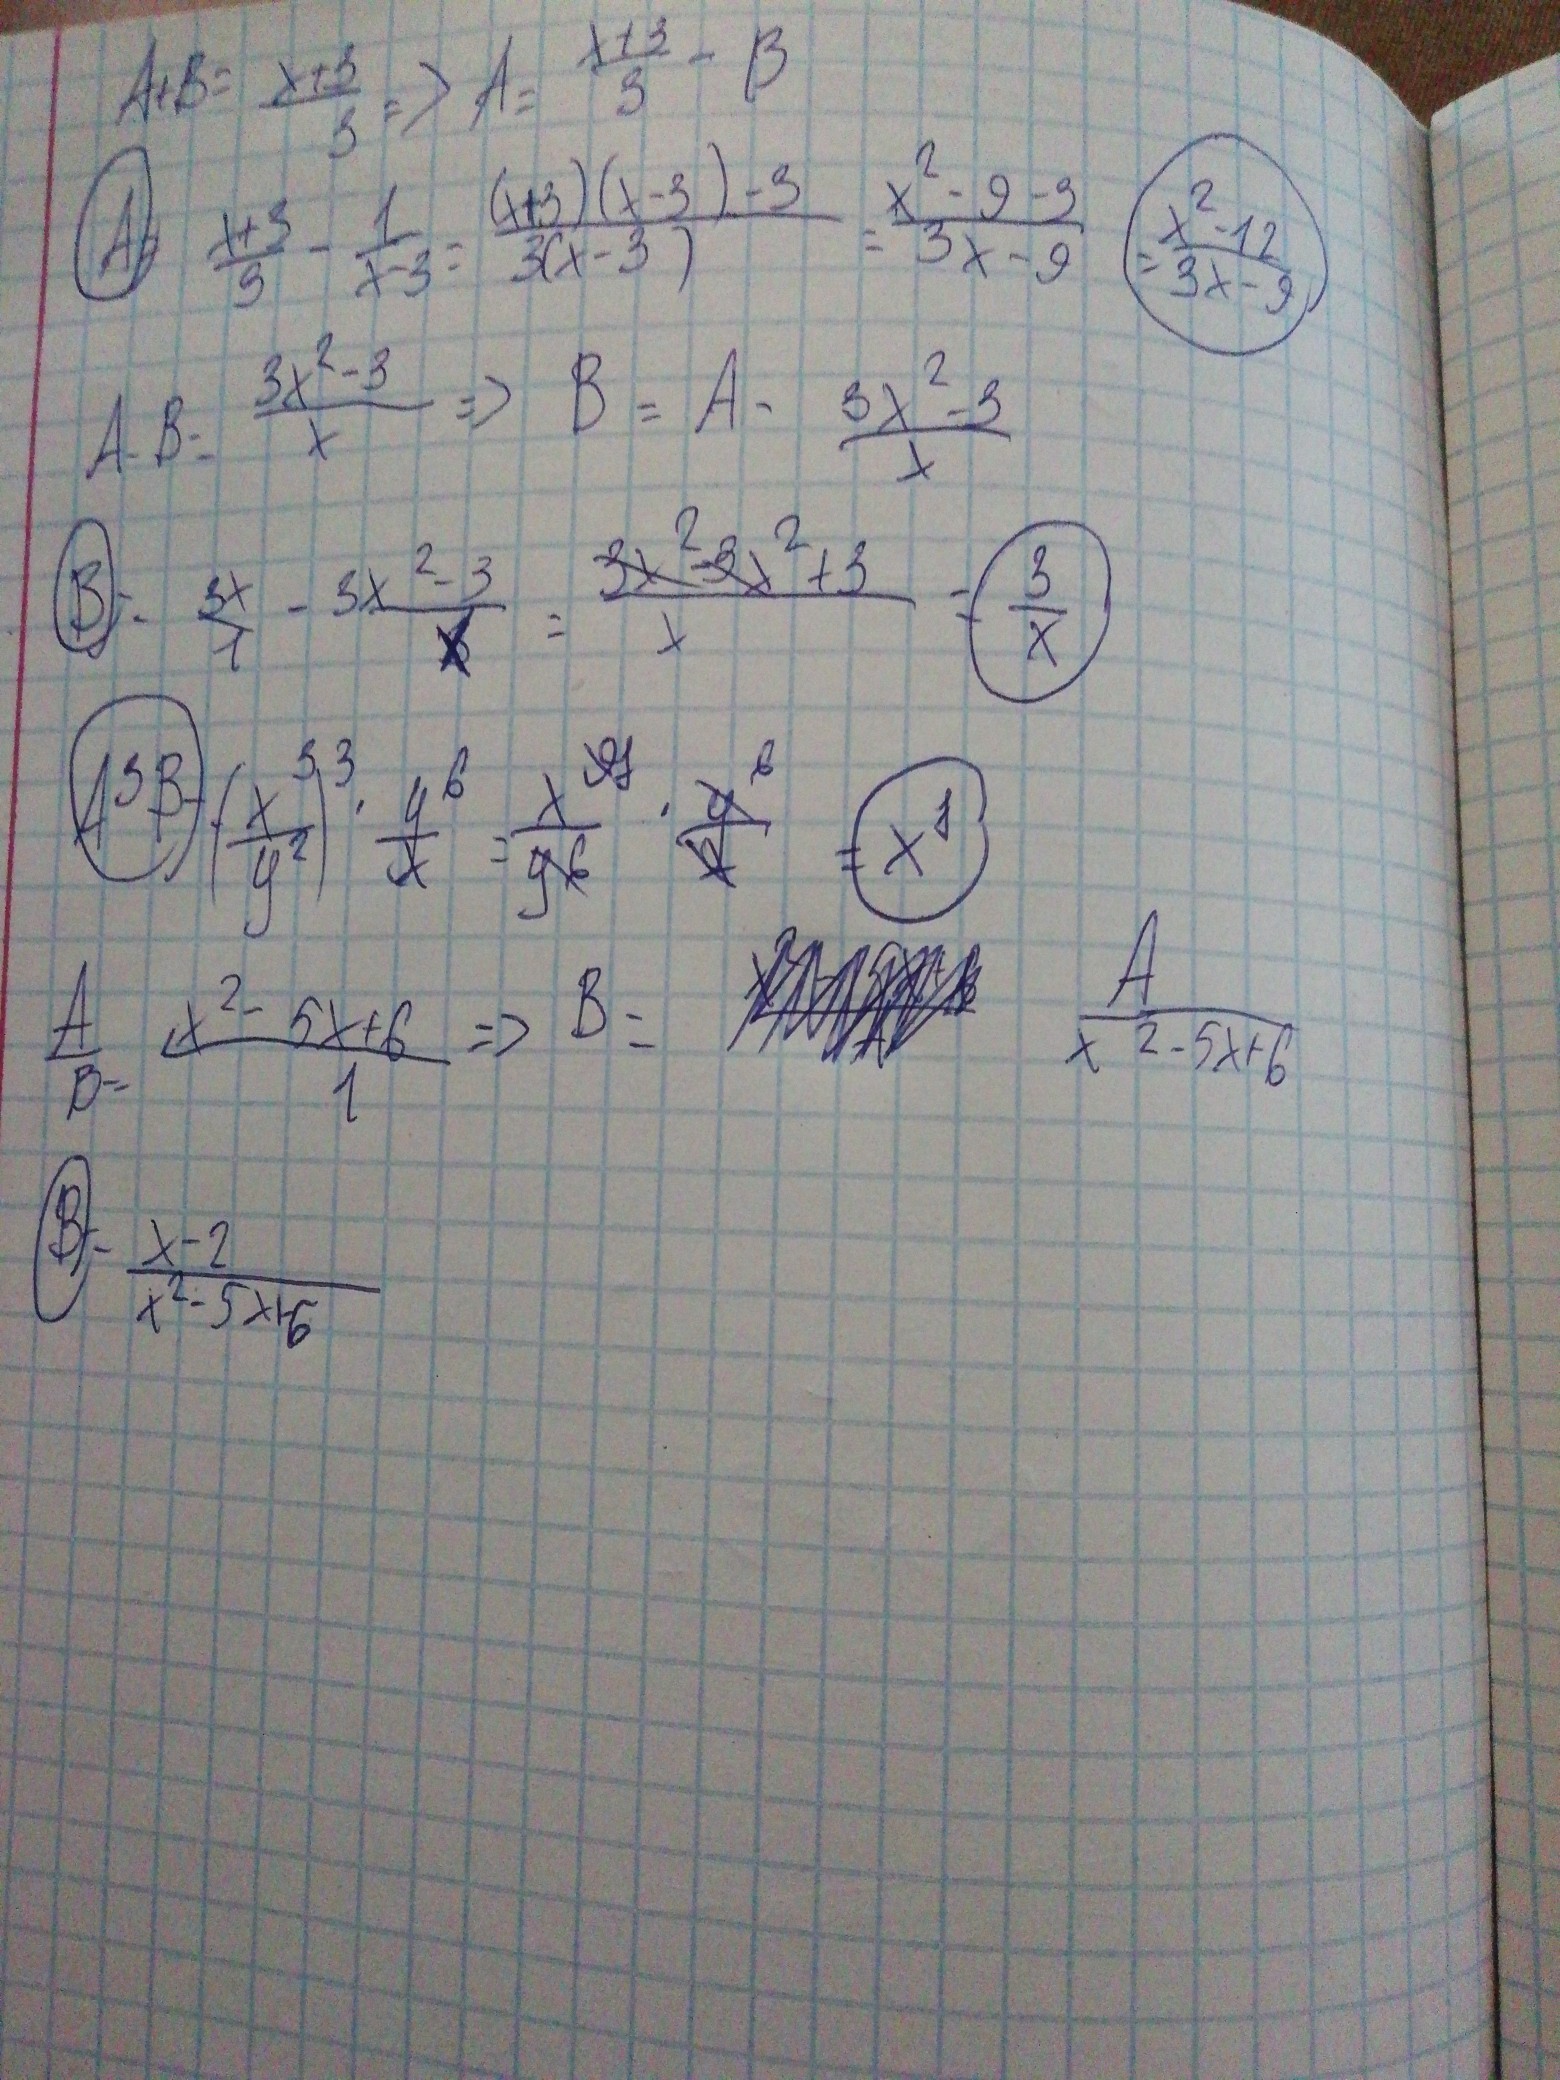 A+B= x+3/3 => A= x+3/3 - B
A= x+3/3 - 1/x-3 = (x+3)(x-3)-3/3(x-3) = x²-9-3/3x-9 = x²-12/3x-9
A-B= 3x²-3/x => B = A - 3x²-3/x
B= 3x/1 - 3x²-3/x = 3x²-3x²+3/x = 3/x
A³B= (x³/y²)³ · y⁶/x = x/y⁶ · y⁶/x = x
A/B= x²-5x+6/1 => B= A/x²-5x+6
B= x-2/x²-5x+6